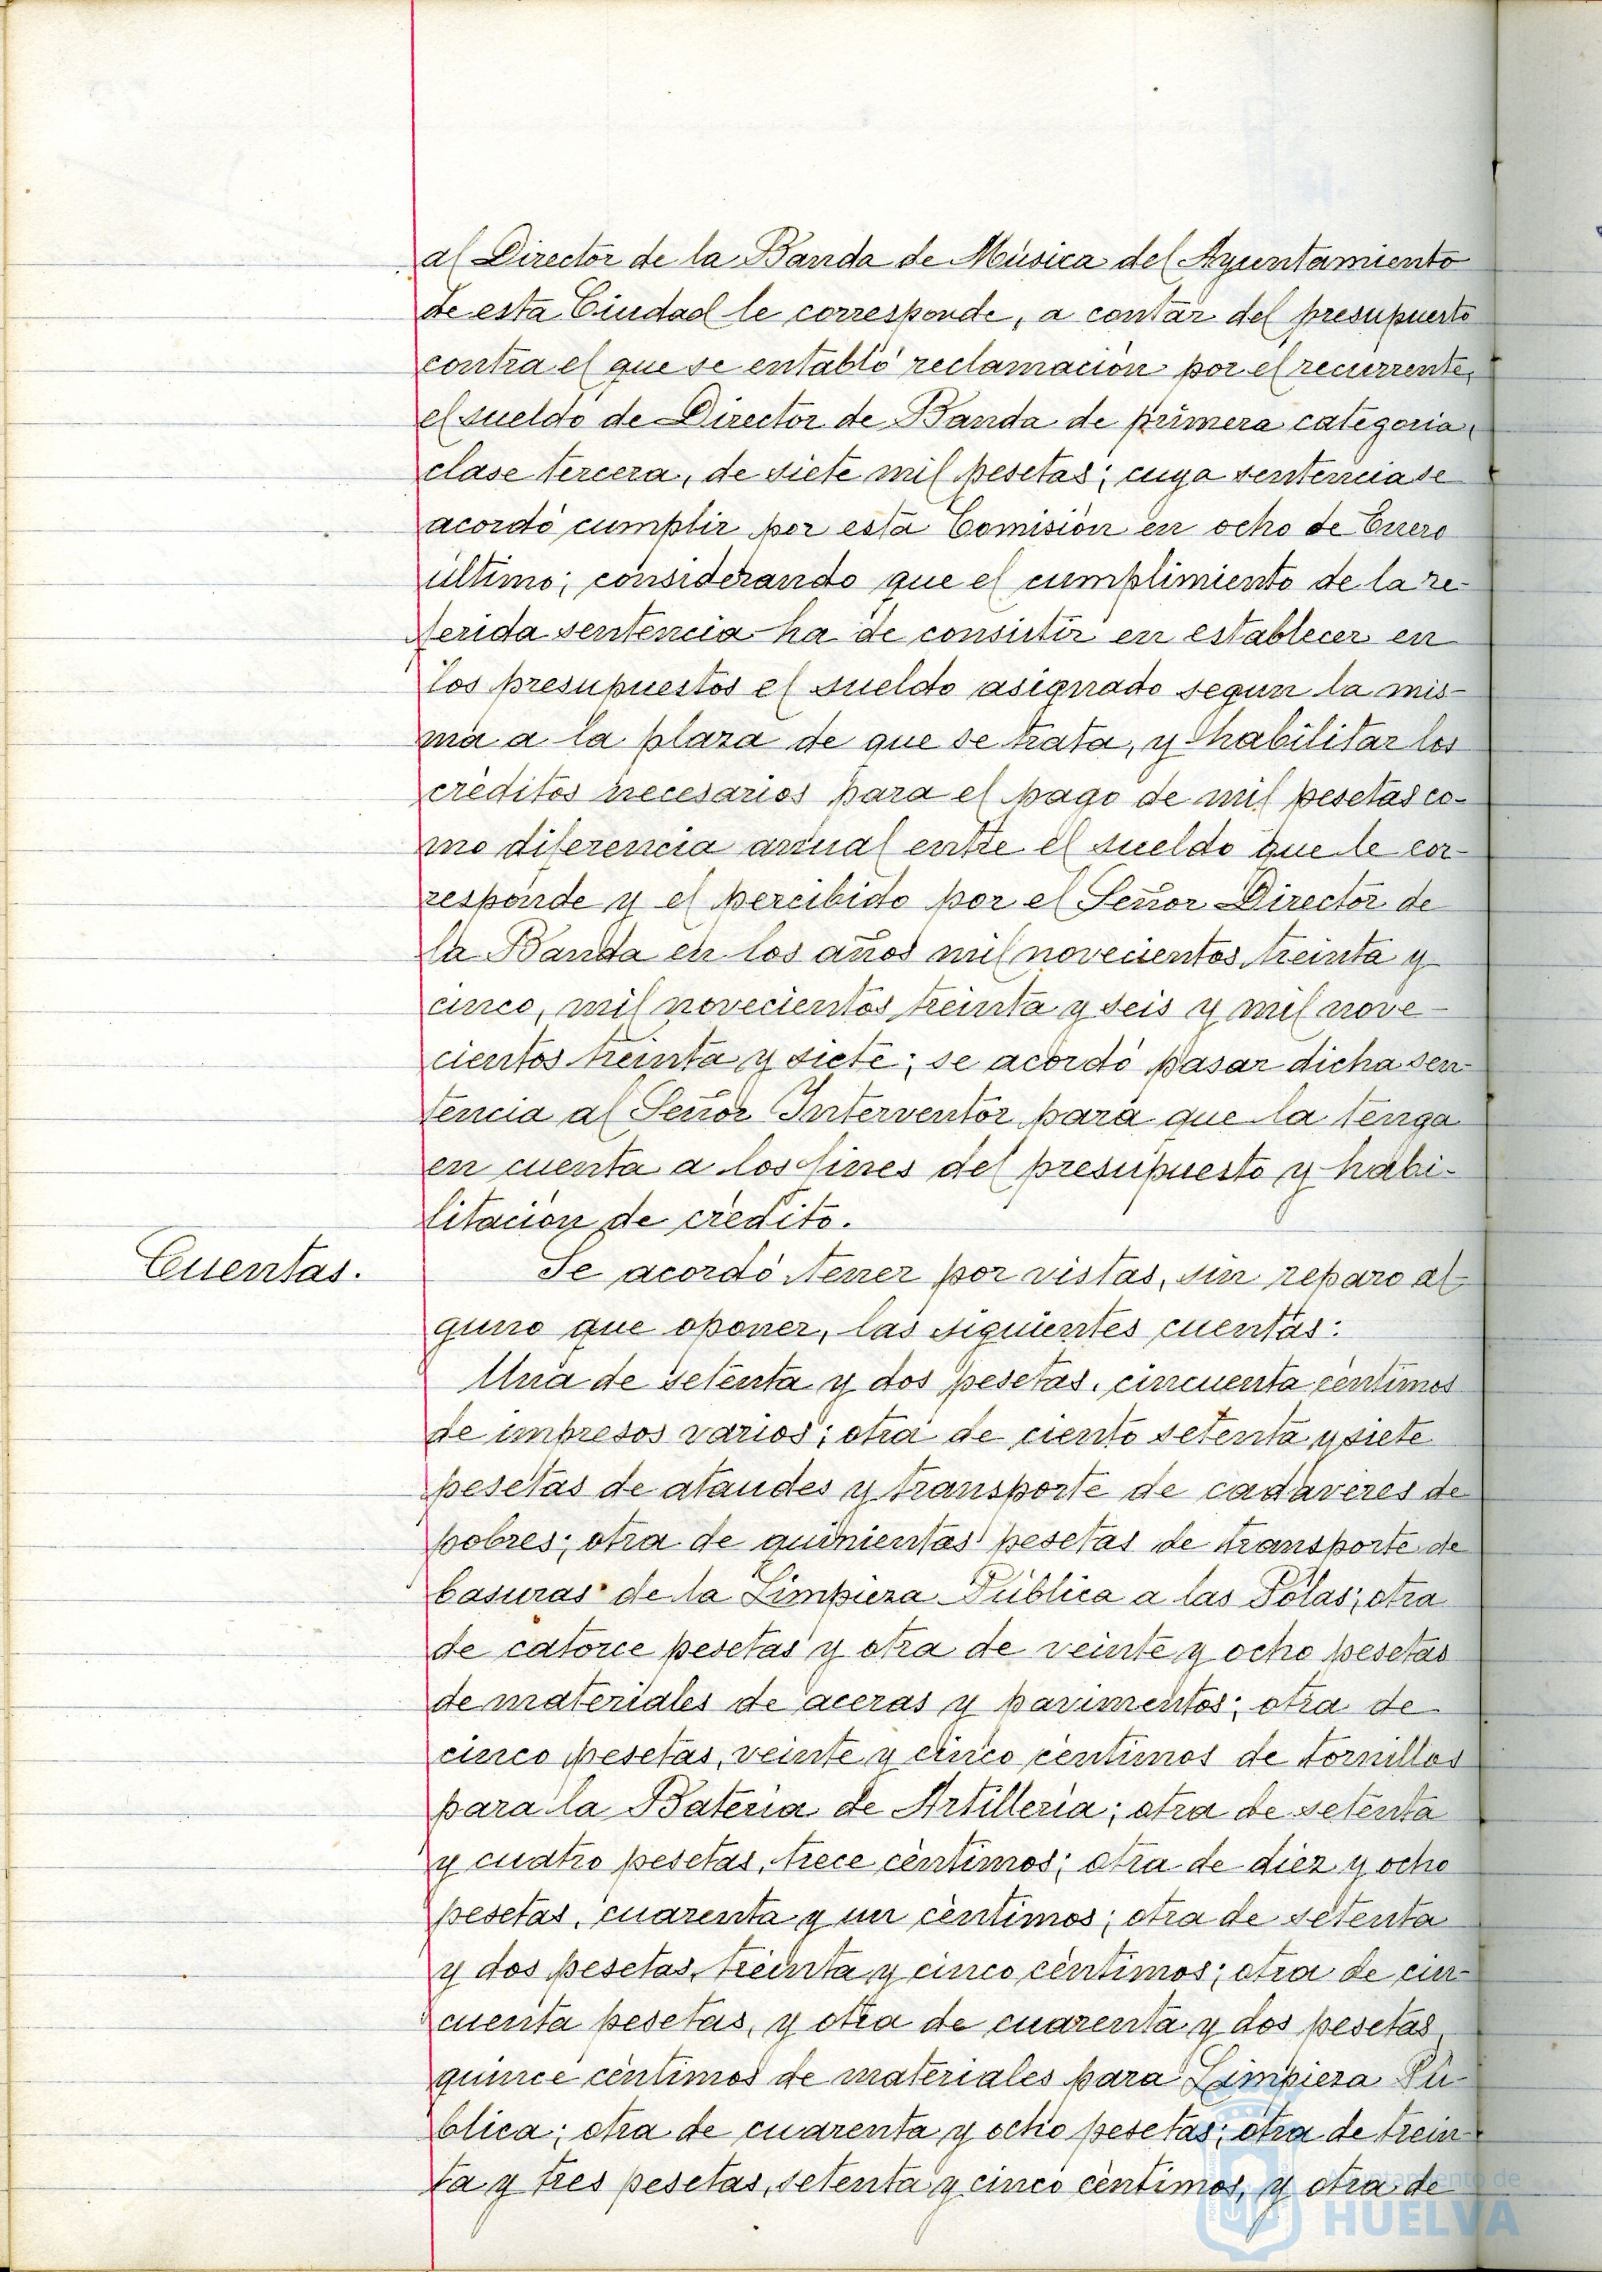 al Director de la Banda de Música del Ayuntamiento
de esta Ciudad le corresponde, a contar del presupuesto
contra el que se entabló reclamación por el recurrente,
el sueldo de Director de Banda de primera categoria,
clase tercera, de siete mil pesetas; cuya sentencia se
acordó cumplir por esta Comisión en ocho de Enero
último; considerando que el cumplimiento de la re-
ferida sentencia ha de consistir en establecer en
los presupuestos el sueldo asignado segun la mis-
ma a la plaza de que se trata, y habilitar los
créditos necesarios para el pago de mil pesetas co-
mo diferencia anual entre el sueldo que le cor-
responde y el percibido por el Señor Director de
la Banda en los años mil novecientos treinta y
cinco, mil novecientos treinta y seis y mil nove-
cientos treinta y siete; se acordó pasar dicha sen-
tencia al Señor Interventor para que la tenga
en cuenta a los fines del presupuesto y habi-
litación de crédito.
Cuentas.
Se acordó tener por vistas, sin reparo al-
guno que oponer, las siguientes cuentas:
Una de setenta y dos pesetas, cincuenta céntimos
de impresos varios; otra de ciento setenta y siete
pesetas de ataudes y transporte de cadáveres de
pobres; otra de quinientas pesetas de transporte de
basuras de la Limpieza Pública a las Polas; otra
de catorce pesetas y otra de veinte y ocho pesetas
de materiales de aceras y pavimentos; otra de
cinco pesetas, veinte y cinco céntimos de tornillos
para la Bateria de Artilleria; otra de setenta
y cuatro pesetas, trece céntimos; otra de diez y ocho
pesetas, cuarenta y un céntimos; otra de setenta
y dos pesetas, treinta y cinco céntimos; otra de cin-
cuenta pesetas, y otra de cuarenta y dos pesetas,
quince céntimos de materiales para Limpieza Pú-
blica; otra de cuarenta y ocho pesetas; otra de trein-
ta y tres pesetas, setenta y cinco céntimos, y otra de
Ayuntamiento de
HUELVA